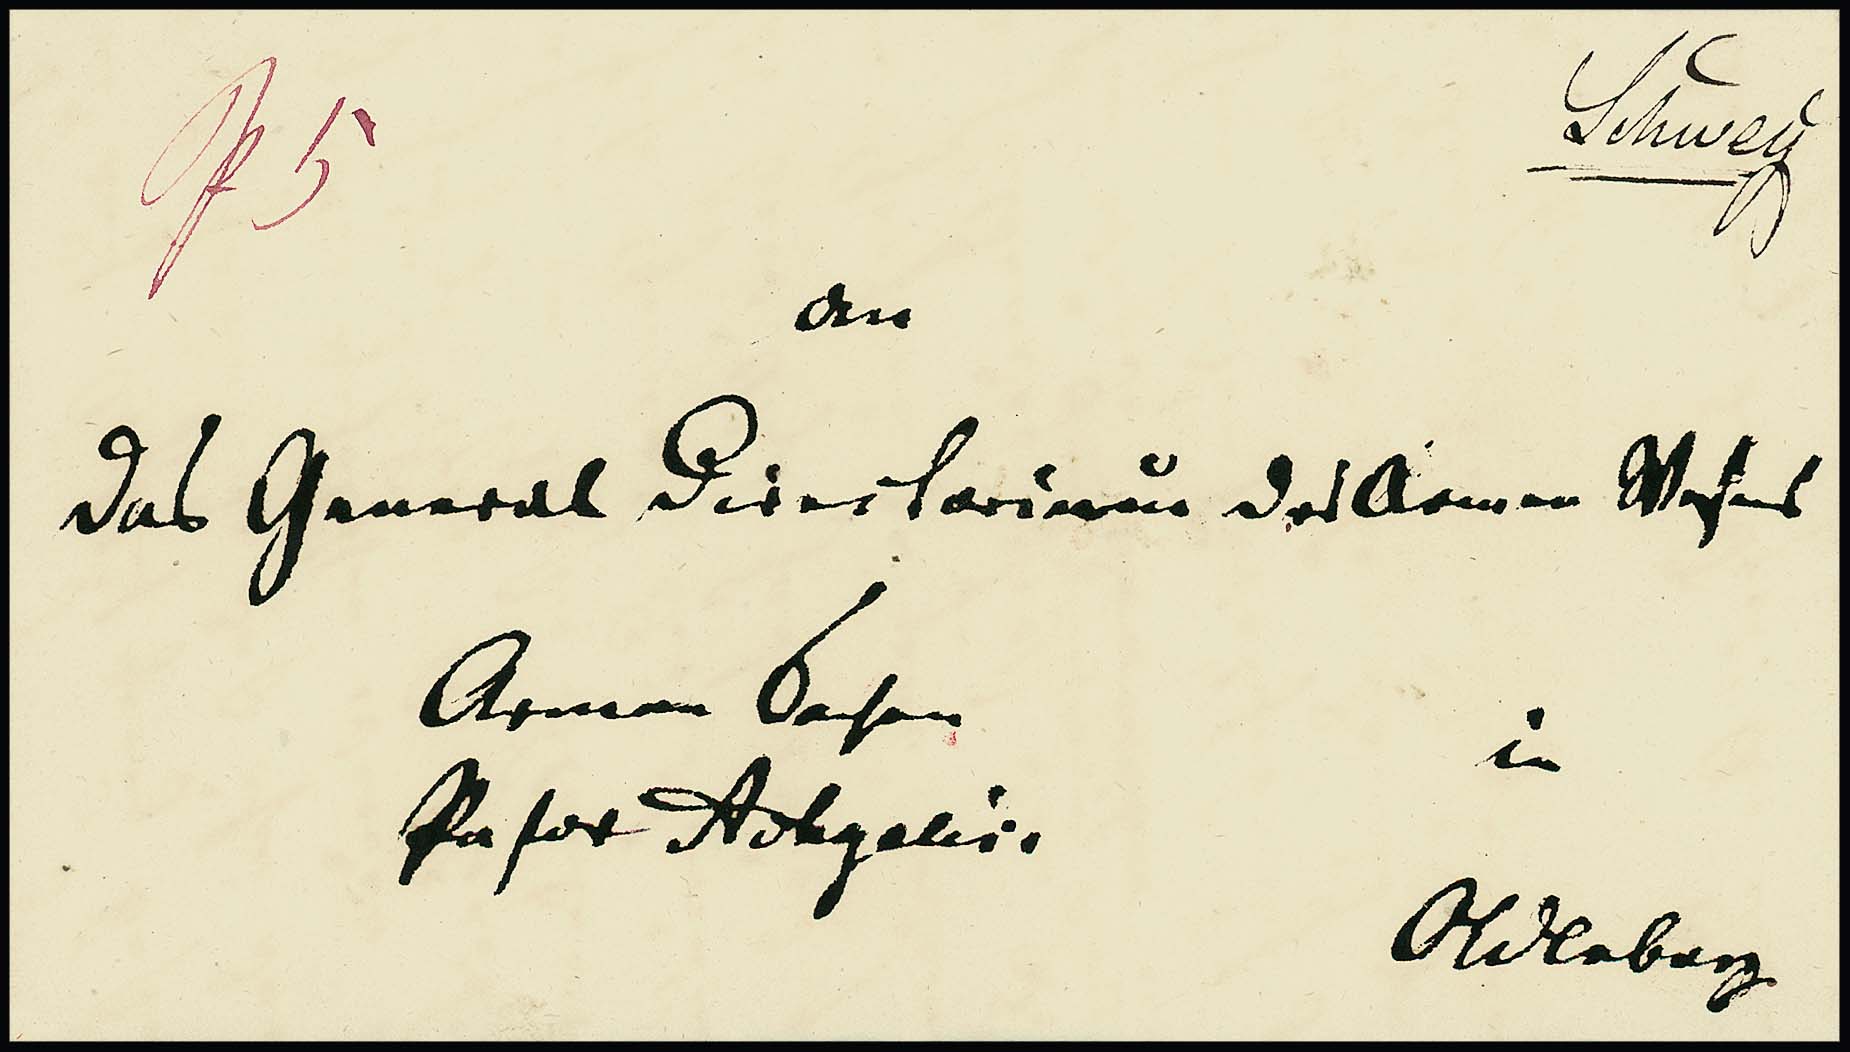 P 5
Schwey
An
das General Directorium des Armen Wesens
Armen Sachen
Pastor Achgelis.
in
Oldenburg